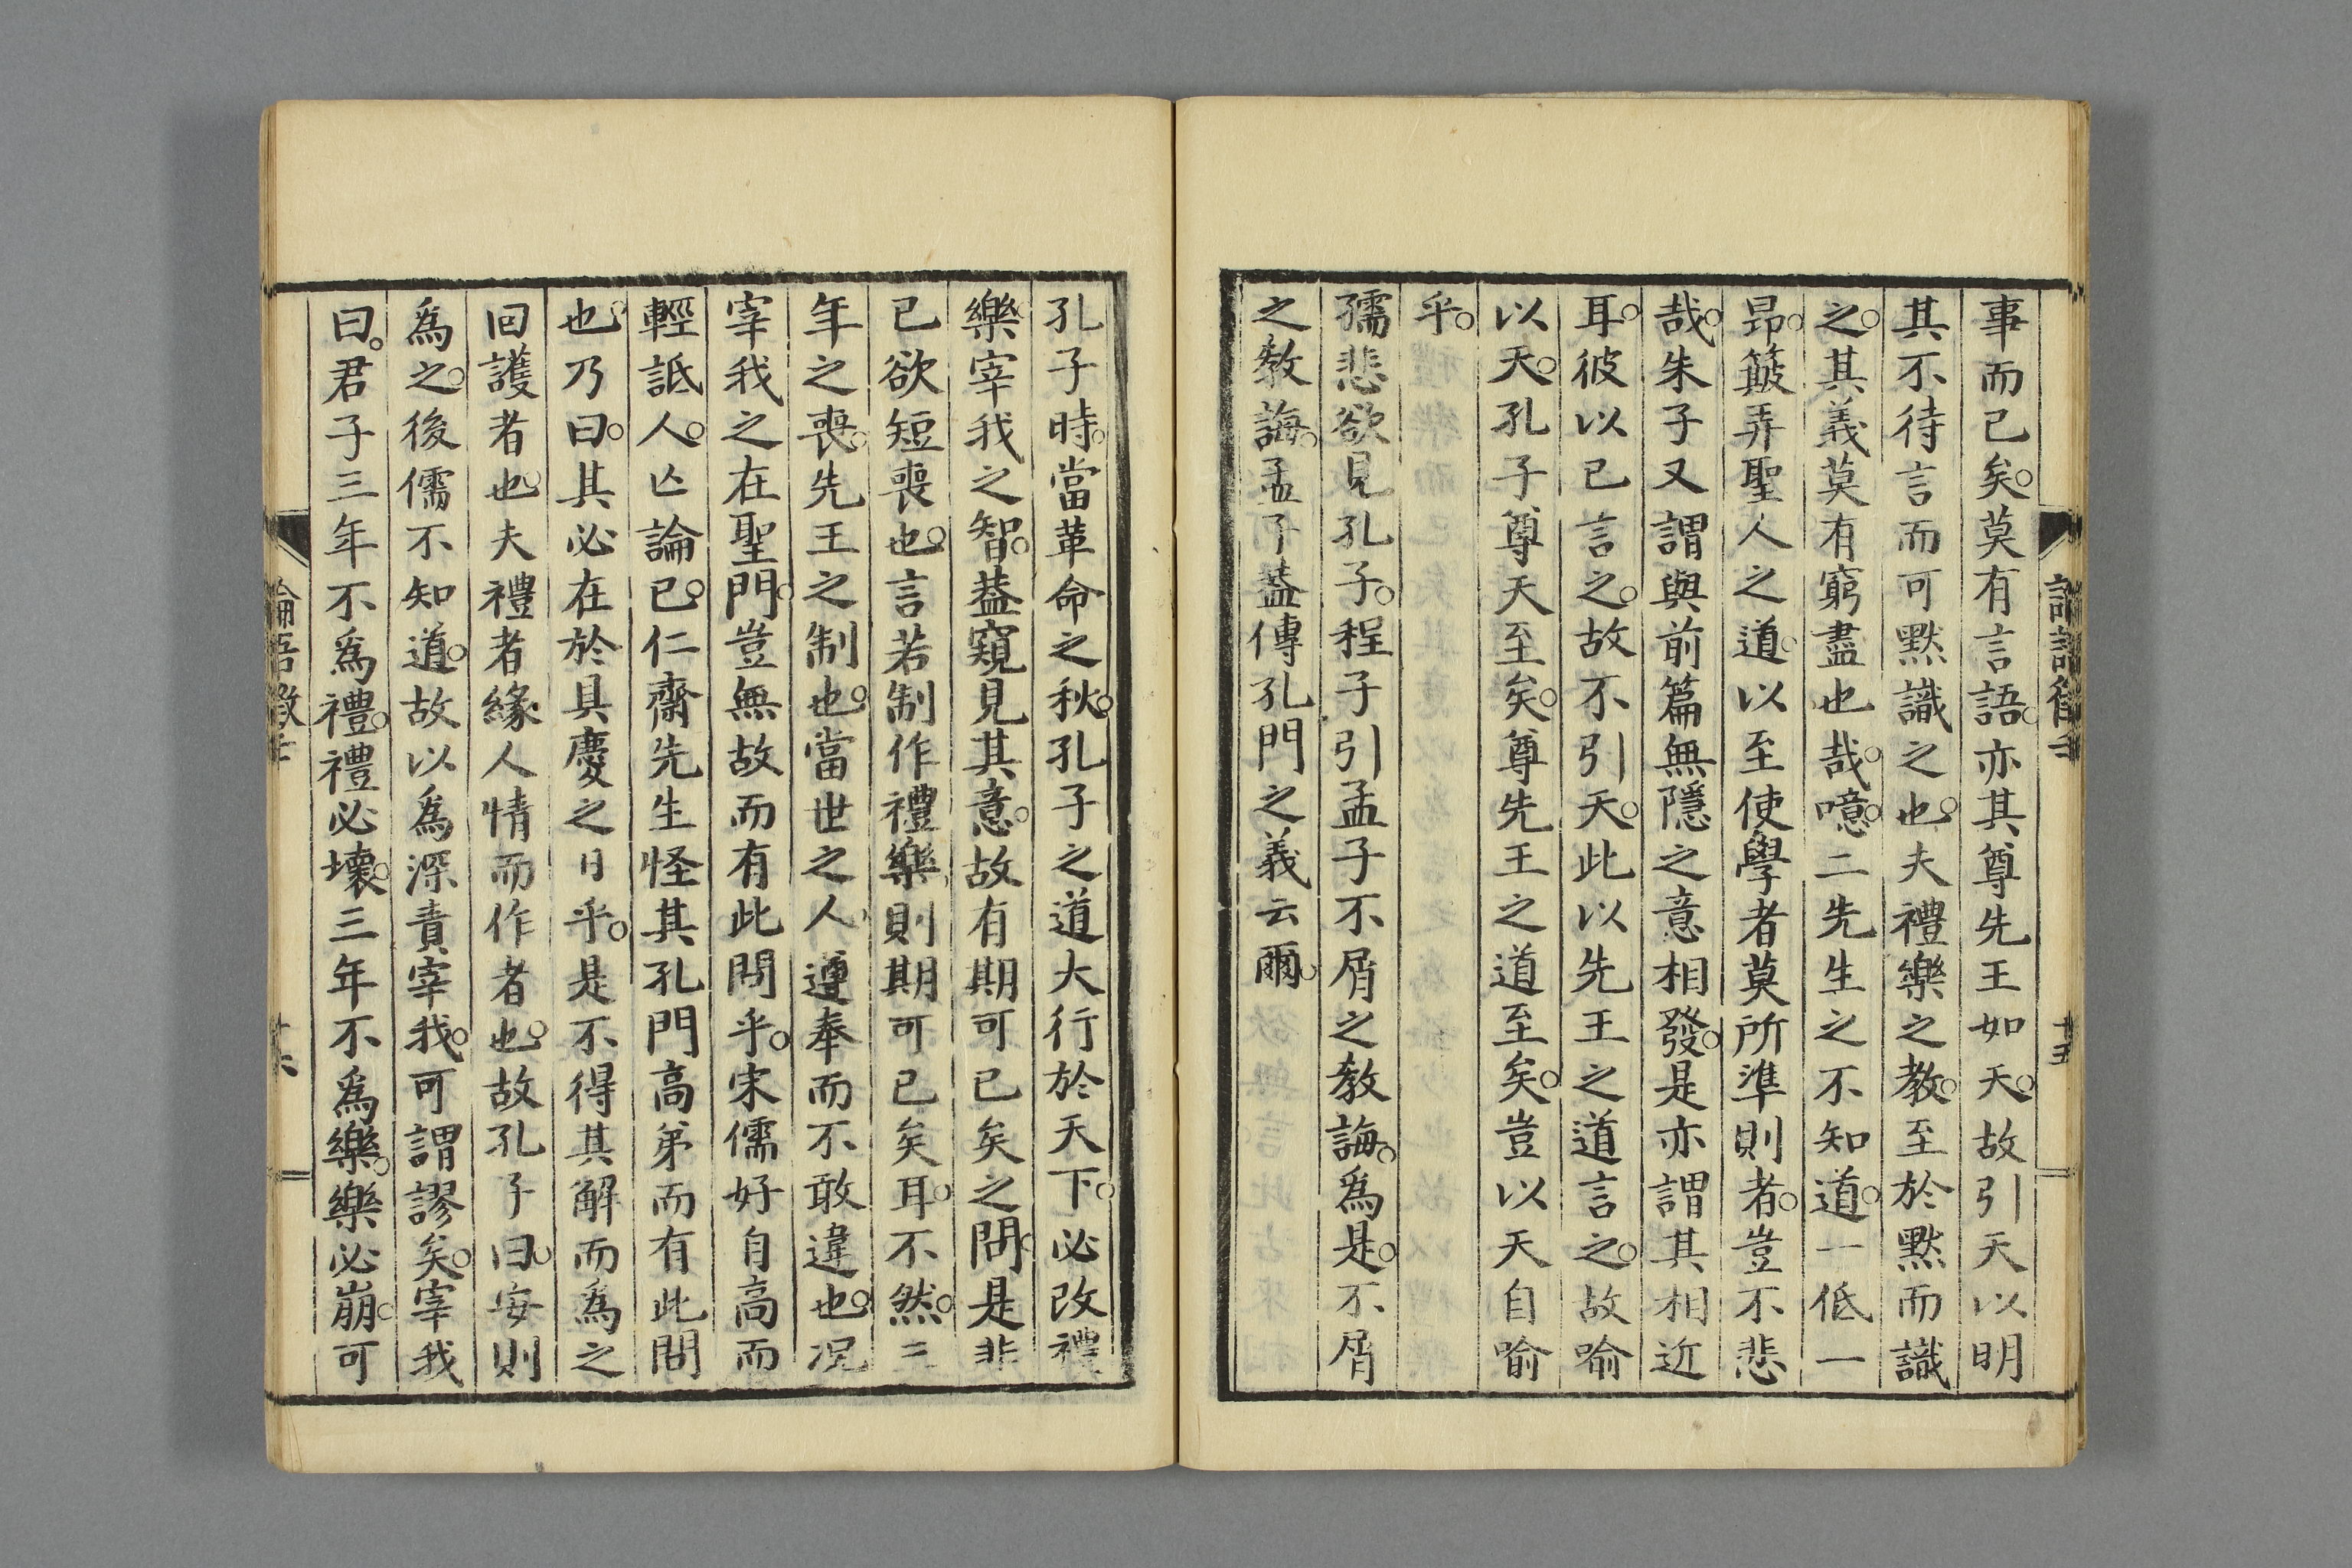 事而已矣。莫有言語。亦其尊先王如天。故引天以明
其不待言而可默識之也。夫禮樂之教。至於默而識
之。其義莫有窮盡也哉。噫。二先生之不知道。一低一
昂。簸弄聖人之道。以至使學者莫所準則者。豈不悲
哉。朱子又謂與前篇無隱之意相發。是亦謂其相近
耳。彼以已言之。故不引天。此以先王之道言之。故喻
以天。孔子尊天至矣。尊先王之道至矣。豈以天自喻
乎。
孺悲欲見孔子。程子引孟子不屑之教誨。爲是。不屑
之教誨。孟子蓋傳孔門之義云爾。
孔子時。當革命之秋。孔子之道大行於天下。必改禮
樂。宰我之智。蓋窺見其意。故有期可已矣之問。是非
已欲短喪也。言若制作禮樂。則期可已矣耳。不然。三
年之喪。先王之制也。當世之人。遵奉而不敢違也。况
宰我之在聖門。豈無故而有此問乎。宋儒好自高而
輕詆人。亡論已。仁齋先生怪其孔門高弟而有此問
也。乃曰。其必在於具慶之日乎。是不得其解而爲之
回護者也。夫禮者緣人情而作者也。故孔子曰。安則
爲之。後儒不知道。故以爲深責宰我。可謂謬矣。宰我
曰。君子三年不爲禮。禮必壞。三年不爲樂。樂必崩。可
論語徵壬
十六